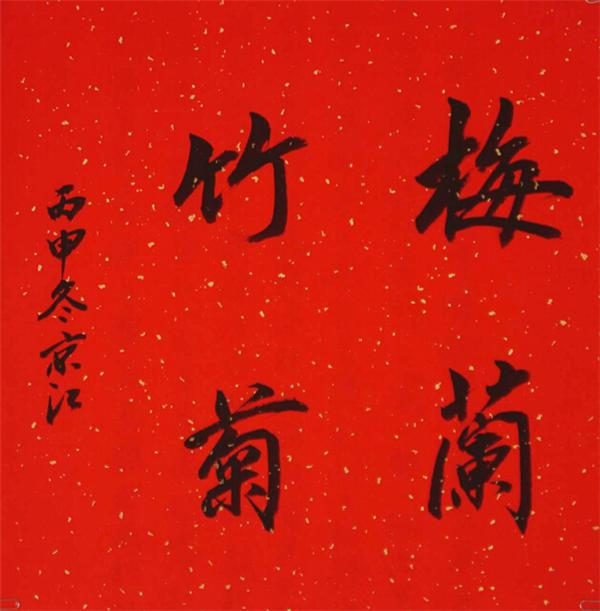 梅蘭
竹菊
丙申冬京江